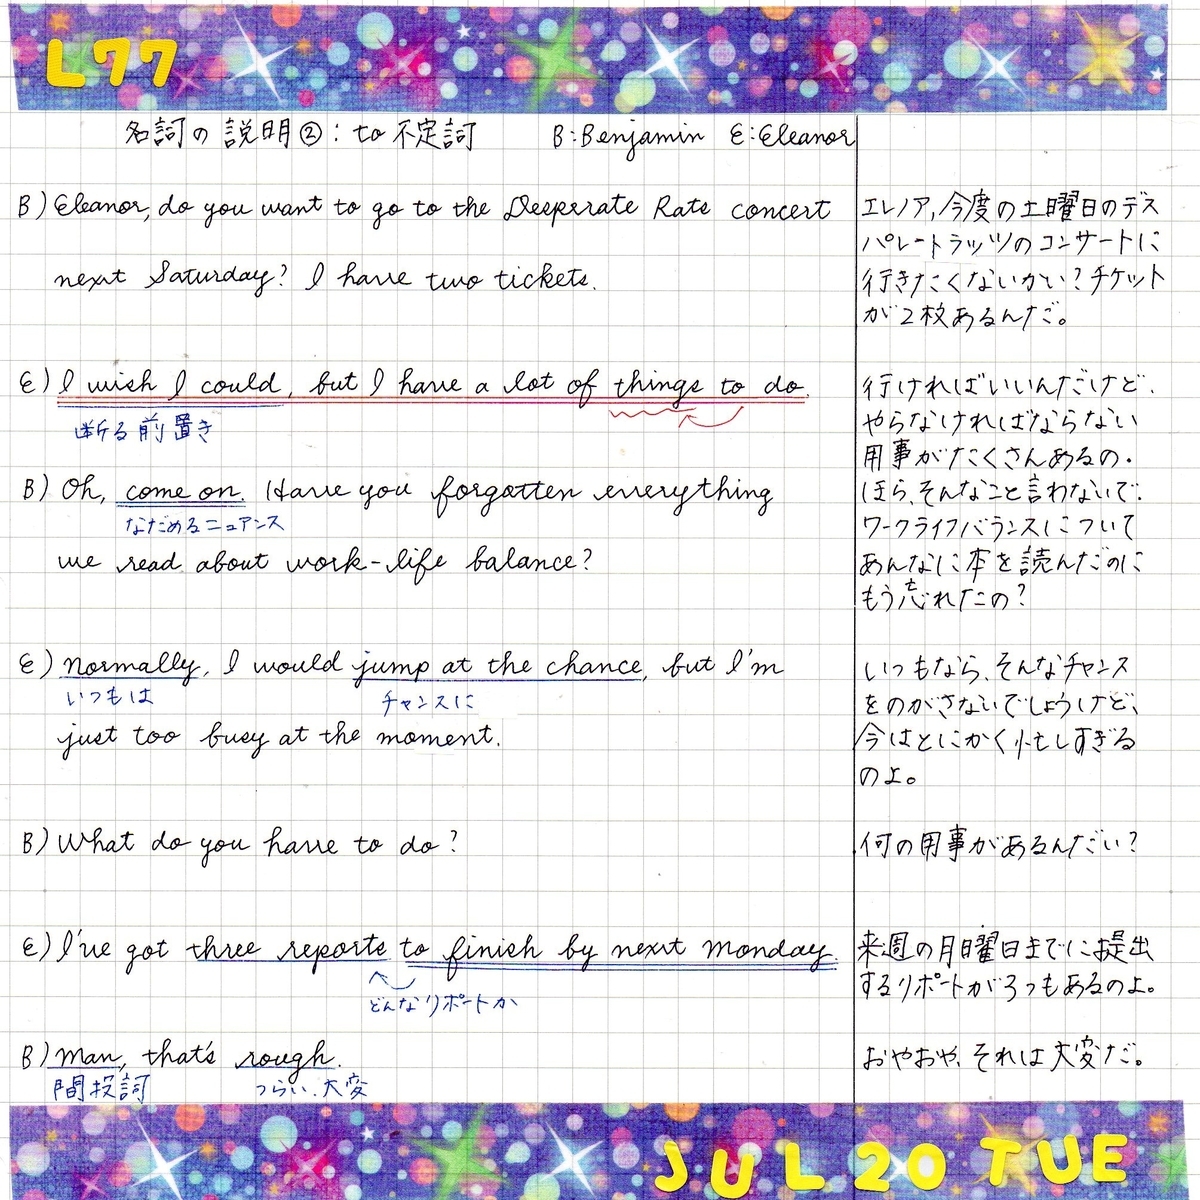 L77
名詞の説明②：to 不定詞　B:Benjamin E:Eleanor
B) Eleanor, do you want to go to the Desperate Rats concert
next Saturday? I have two tickets.
エレノア,今度の土曜日のデス
パレートラッツのコンサートに
行きたくないかい？チケット
が2枚あるんだ。
E) I wish I could, but I have a lot of things to do.
断る前置き
行ければいいんだけど、
やらなければならない
用事がたくさんあるの.
B) Oh, come on. Have you forgotten everything
なだめるニュアンス
we read about work-life balance?
ほら、そんなこと言わないで.
ワークライフバランスについて
あんなに本を読んだのに
もう忘れたの？
E) Normally, I would jump at the chance, but I'm
いつもは
チャンスに
just too busy at the moment.
いつもなら、そんなチャンス
をのがさないでしょうけど、
今はとにかく忙しすぎる
のよ。
B) What do you have to do?
何の用事があるんだい？
E) I've got three reports to finish by next Monday.
どんなリポートか
来週の月曜日までに提出
するリポートが3つもあるのよ。
B) Man, that's rough.
間投詞
つらい、大変
おやおや、それは大変だ。
JUL 20 TUE